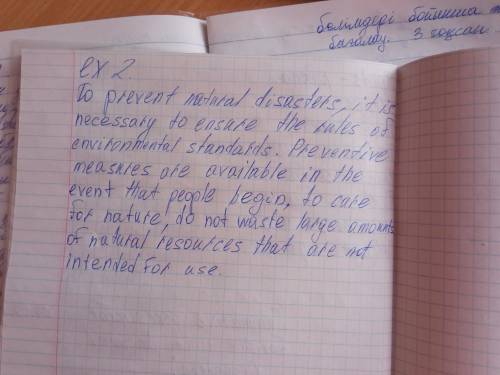 бөлімдері бойынша
бағалау. 3 тоқсан
ex 2.
To prevent natural disasters, it is
necessary to ensure the rules of
environmental standards. Preventive
measures are available in the
event that people begin, to care
for nature, do not waste large amounts
of natural resources that are not
intended for use.